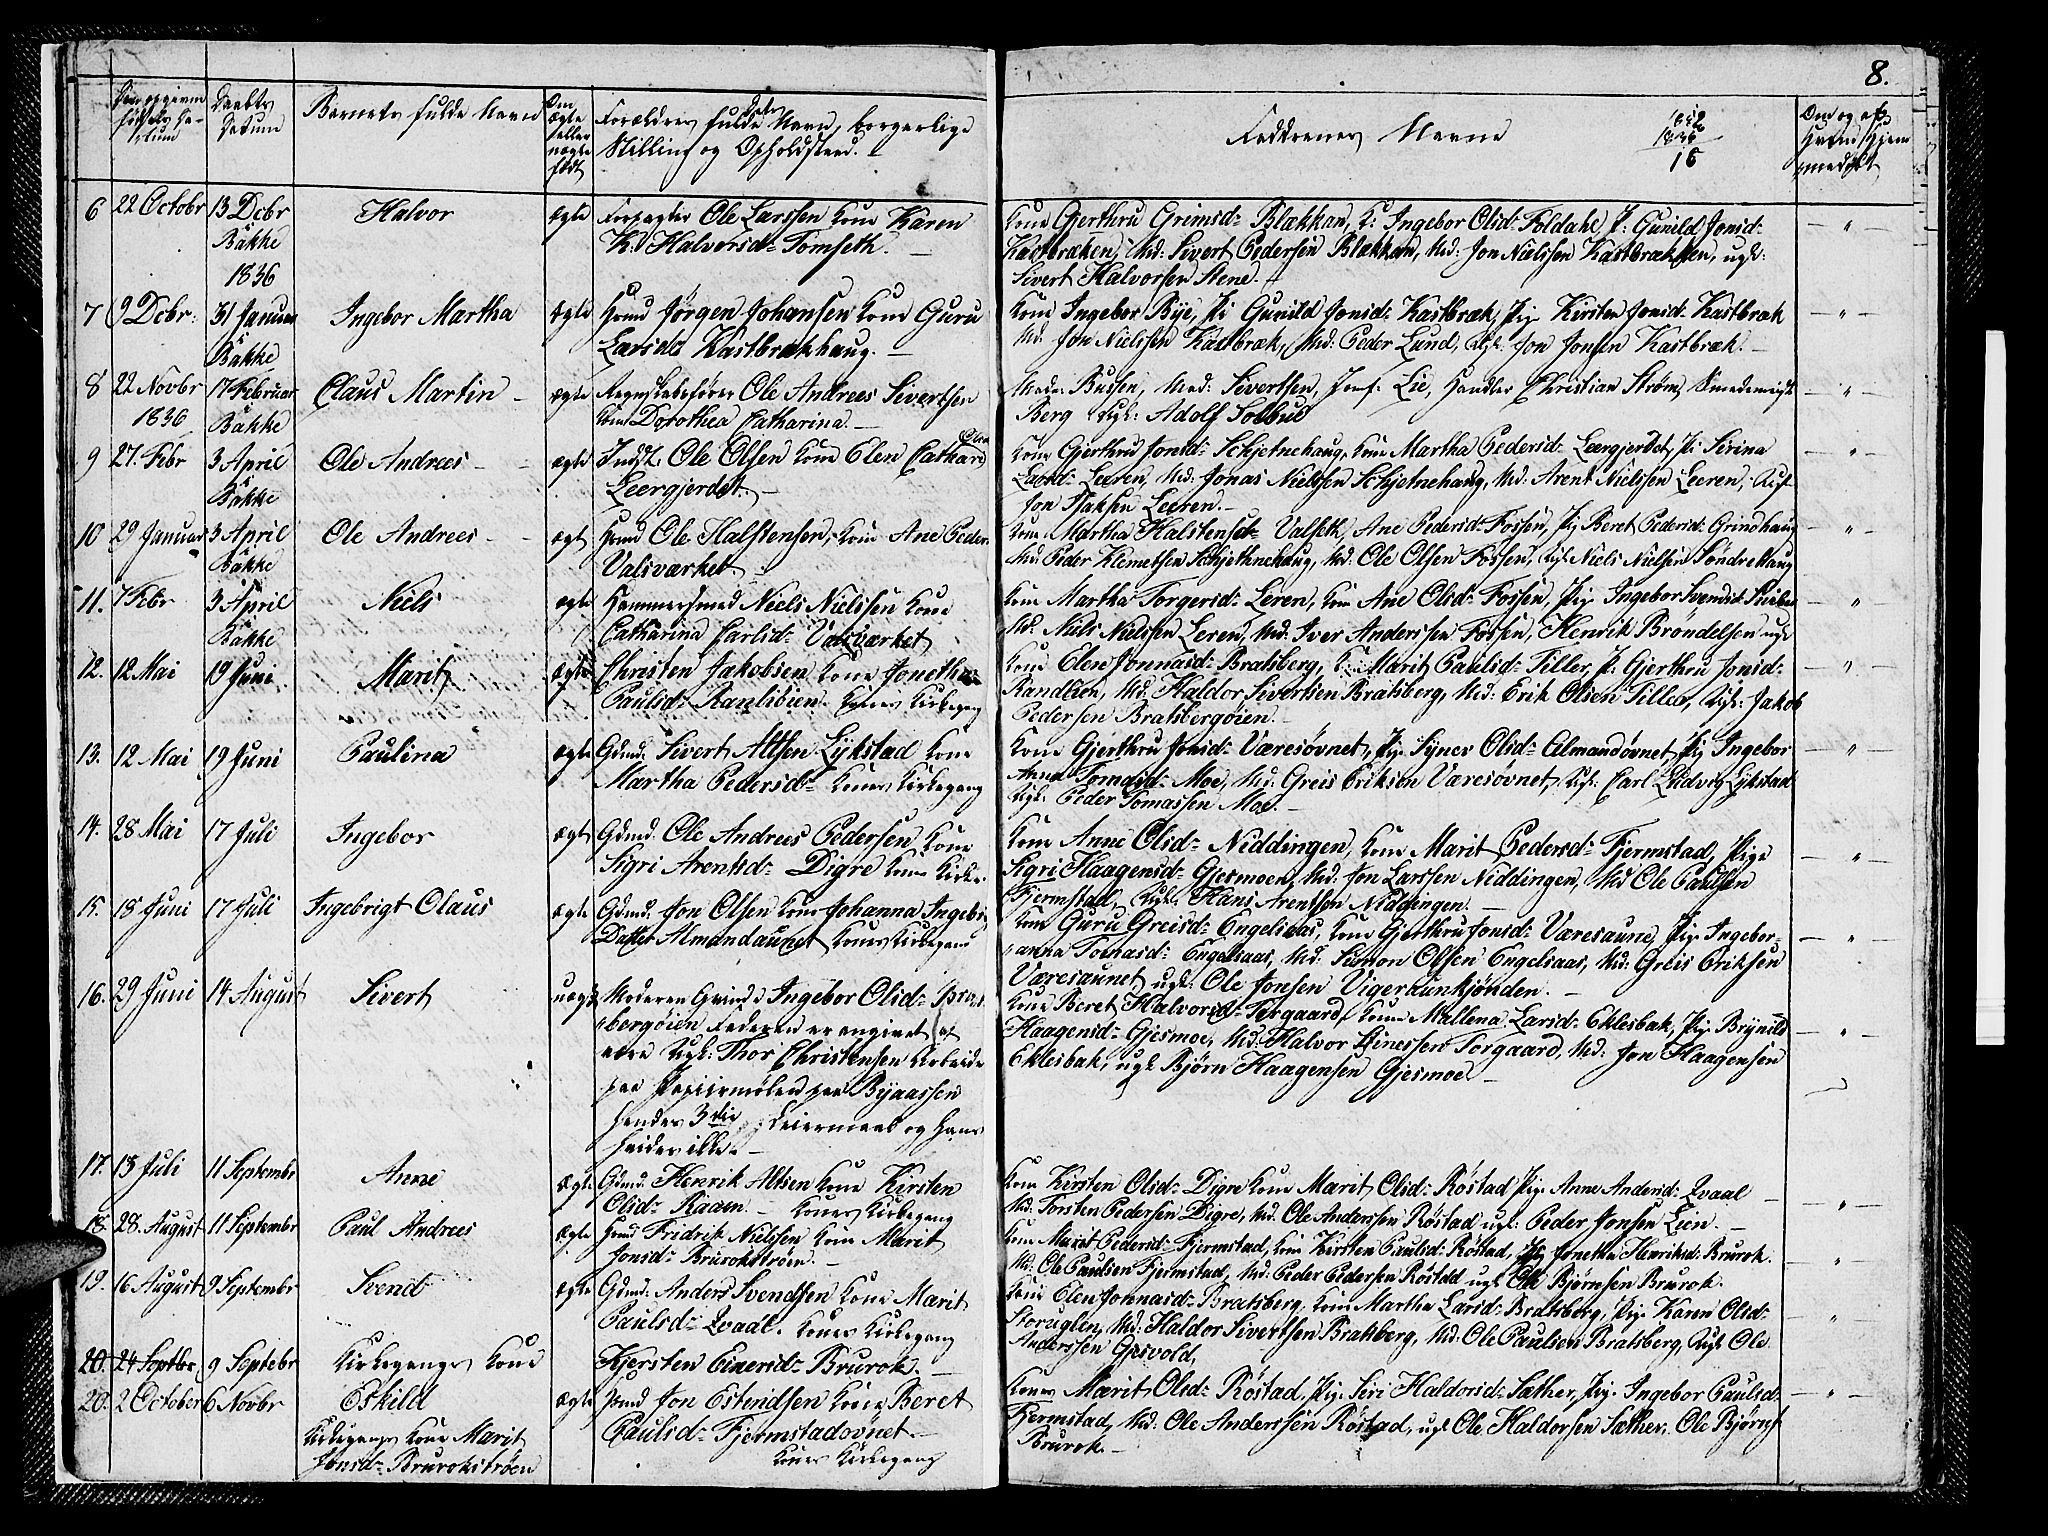 8.
Daabs Datum
Barnets fulde Navn
Om ægte eller uægte født
Forældres fulde Navn, borgerlige
Stilling og Opholdsted.
Faddrenes Navne
1852
1836
16
6 22 Octobr 13 Dcbr Halvor ægte Forpagter Ole Larssen Kone Karen
Bakke
H. Halvorsd= Tomseth.
1836
Kone Gjerthru Grimsd= Blækkan, K: Ingebor Olsd= Foldahl, P: Gunild Jonsd=
Kastbrækken, Md: Sivert Pedersen Blækkan, Md: Jon Nielsen Kastbrækken, ugk:
Sivert Halvorsen Stene.
7 9 Dcbr: 31 Januar Ingebor Martha ægte Hmd Jørgen Johansen Kone Guru
Bakke
Larsd= Kastbrækhaug.
Kone Ingebor Rye, Pi Gunild Jonsd= Kastbræk, Pig Kirsten Jonsd= Kastbræk
Md. Jon Nielssen Kastbræk, Md: Peder Lund, Ugk: Jon Jonsen Kastbræk.
8 22 Novbr 17 Februar Claus Martin ægte Regnskabsfører Ole Andreas Sivertsen
1836 Bakke
Kone Dorothea Catharina.
Mad: Sivertsen, Jomf: Lie, Handler Christian Strøm, Smedemegst
Berg Ugk: Adolf Solbue
9 27. Febr 3 April Ole Andreas ægte Inds. Ole Olsen Kone Elen Cathar.
Bakke
Leergjerdet.
Kone Gjerthru Jonsd= Schjetnehaug, Kone Martha Pedersd= Leergjerdet, Pi Sirina
Larsd= Leeren, Md: Jonas Nielsen Schjetnehaug, Md: Arent Nielssen Leeren, Ugk
Jon Isaksen Leeren.
10 29 Januar 3 April Ole Andreas ægt Hmd Ole Halstensen, Kone Ane Peder.
Bakke
Valsværket.
Kone Martha Halstensd= Valseth, Ane Pedersd= Fossen, Pig Beret Pedersd= Grindhaug
Md: Peder Klemetsen Schjethnehaug, Md: Ole Olsen Fossen, Ugk. Niels Nielsen Søndrehaug
11. 7 Febr 3 April Niels ægte Hammersmed Niels Nielssen Kone
Bakke
Catharina Carlsd= Valsværket
Kone Martha Torgersd= Leren, Kone Ane Olsd= Fossen, Pig Ingebor Svendsd
Md. Niels Nielssen Leren, Md: Iver Anderssen Fossen, Henrik Brøndelsen ugk
12. 12 Mai 19 Juni Marit ægte Christen Jakobsen Kone Jonetha
Paulsd= Ranliøien. Kones Kirkegang
Kone Elen Jonnasd= Bratsberg, K: Marit Paulsd= Tiller, P: Gjerthru Jonsd=
Randlien, Md: Haldor Sivertsen Bratsberg, Md: Erik Olsen Tiller, Ugk: Jakob
Pedersen Bratsbergøien.
13. 12 Mai 19 Juni Paulina ægte Gdmd. Sivert Altsen Lykstad Kone
Martha Pedersd= Kones Kirkegang
Kone Gjerthru Jonsd= Væresøvnet, Pig Synev Olsd= Almandøvnet, Pig Ingebor
Anna Tomasd= Moe, Md: Greis Eriksen Væresøvnet, Ugk: Carl Ludvig Lykstad
Ugk: Peder Tomassen Moe.
14. 28 Mai 17 Juli Ingebor ægt Gdmd. Ole Andreas Pedersen Kone
Sigri Arentsd= Digre Kones Kirke.
Kone Anne Olsd= Niddingen, Kone Marit Pedersd= Fjermstad, Pige
Sigri Haagensd= Gjesmoen, Md: Jon Larssen Niddingen, Md Ole Paulsen
Fjermstad, Ugk. Hans Arentsen Niddingen.
15. 18 Juni 17 Juli Ingebrigt Olaus ægte Gdmd. Jon Olsen Kone Johanna Ingebri
Datter Almandaunet Kones Kirkegang
Kone Guru Greisd= Engelsaas, Kone Gjerthru Jonsd= Væresaune, Pig. Ingebor=
anna Tomasd= Engelsaas, Md: Simon Olsen Engelsaas, Md: Greis Eriksen
Væresaunet, ugk: Ole Jonsen Vigeraunkjønden.
16. 29 Juni 14 August Sivert uægte Moderen Qvind: Ingebor Olsd= Brat
sbergøien Faderen er angivet at
være Ugk: Thor Christensen Arbeide
paa Papiirmølen paa Byaassen
hendes 3die Leiermaal og hans
ikke.
Kone Beret Halvorsd= Torgaard, Kone Mallena Larsd= Eklesbak, Pig. Brynild
Haagensd= Gjesmoe, Md: Halvor Einessen Torgaard, Md: Jon Haagensen
Eklesbak, ugk Bjørn Haagensen Gjesmoe
17. 13 Juli 11 Septembr Anne ægte Gdmd. Henrik Altsen Kone Kirsten
Olsd= Raam. Kones Kirkegang
Kone Kirsten Olsd= Digre Kone Marit Olsd= Røstad Pig. Anne Andersd= Qvaal
Md: Torsten Pedersen Digre, Md. Ole Anderssen Røstad ugk: Peder Jonsen Lien.
18. 28. August 11 Septembr Paul Andreas ægte Hmd Fridrik Nielssen Kone Marit
Jonsd= Brurokstrøen.
Kone Marit Pedersd= Fjermstad, Kone Kirsten Paulsd= Røstad, Pig Jonetha Henriksd: Brurok.
Md: Ole Paulsen Fjermstad, Md: Peder Pedersen Røstad ugk Ole Bjørnsen Brurok.
19. 16 August 9 Septembr Svend ægte Gdmd: Anders Svendsen Kone Marit
Paulsd= Qvaal. Kones Kirkegang
Kone Elen Jonnasd= Bratsberg, Kone Martha Larsd= Bratsberg, Pig. Karen Olsd=
Storuglen, Md: Haldor Sivertsen Bratsberg, Md: Ole Paulsen Bratsberg, Ugk Ole
Anderssen Gjesvold,
20. 24 Septbr. 9 Septebr Kirkegangs Kone Kjersten Einersd= Brurok
20. 2 October 6 Novbr Eskild ægte Hmd Jon Estendsen Kone Beret
Kirkegangs Kone Marit Paulsd= Fjermstadøvnet.
Jonsd= Brurokstrøen Kones Kirkegang
Kone Marit Olsd= Røstad, Pig. Siri Haldorsd= Sæther, Pig. Ingebor Paulsd.
Fjermstad, Md: Ole Anderssen Røstad, ugk Ole Haldorsen Sæther, Ole Bjørns
Brurok.